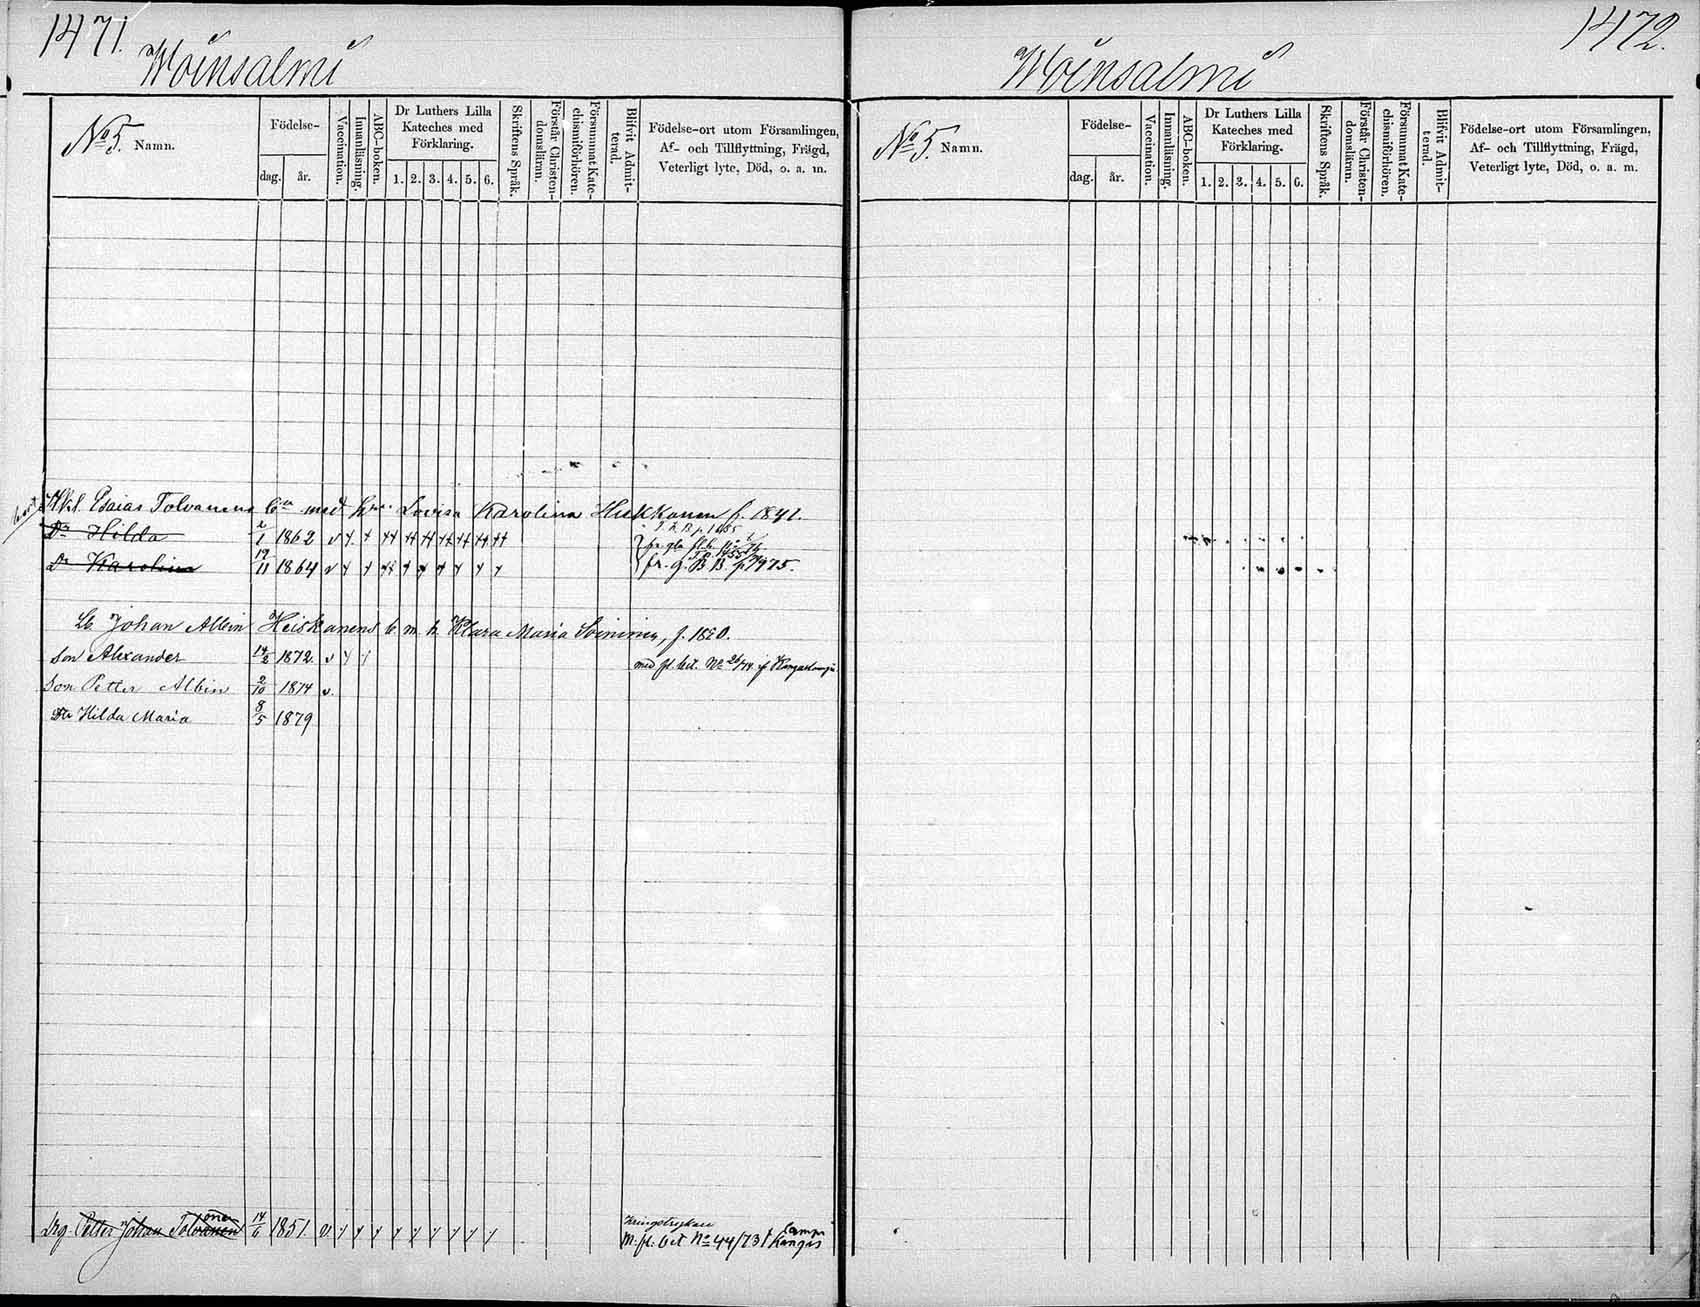 1471.
Woinsalmi
No 5. Namn.
Födelse-
dag. år.
Vaccination.
Innanläsning.
ABC-boken.
Dr Luthers Lilla Kateches med Förklaring.
1. 2. 3. 4. 5. 6.
Skriftens Språk.
Förstår Christendomsläran.
Försummat Katechismiförhören.
Blifvit Admitterad.
Födelse-ort utom Församlingen, Af- och Tillflyttning, Frägd, Veterligt lyte, Död, o. a. m.
Esaias Tolvanens med Lovisa Karolina Hukkanen f. 1841.
Dr Hilda 2/1 1862
Dr Karolina 19/11 1864 fr. g. B B. p 975.
Johan Albin Heiskanens b m h Klara Maria Soininen, f. 1820.
Son Alexander 14/2 1872 med fl. bet. No 26/74 if Kangaslampi
Son Petter Albin 2/10 1874
Dr Hilda Maria 8/5 1879
Drg. Petter Johan Tolvanen 14/6 1851.
m. fl. bet No 44/73 f Kangaslampi
1472.
Woinsalmi
No 5. Namn.
Födelse-
dag. år.
Vaccination.
Innanläsning.
ABC-boken.
Dr Luthers Lilla Kateches med Förklaring.
1. 2. 3. 4. 5. 6.
Skriftens Språk.
Förstår Christendomsläran.
Försummat Katechismiförhören.
Blifvit Admitterad.
Födelse-ort utom Församlingen, Af- och Tillflyttning, Frägd, Veterligt lyte, Död, o. a. m.